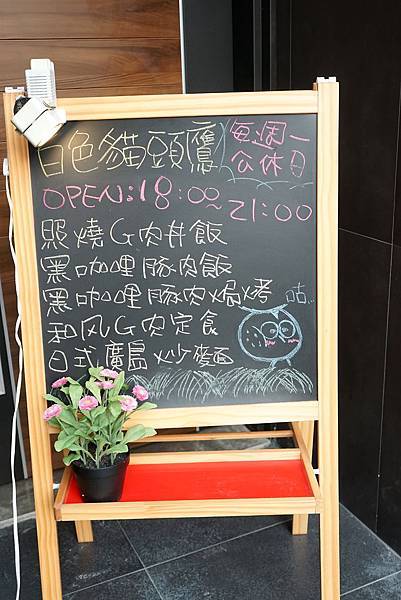 白色貓頭鷹
每週一
公休日
OPEN:18:00~21:00
照燒G肉丼飯
黑咖哩豚肉飯
黑咖哩豚肉焗烤
和风G肉定食
日式廣島炒麵
咕...